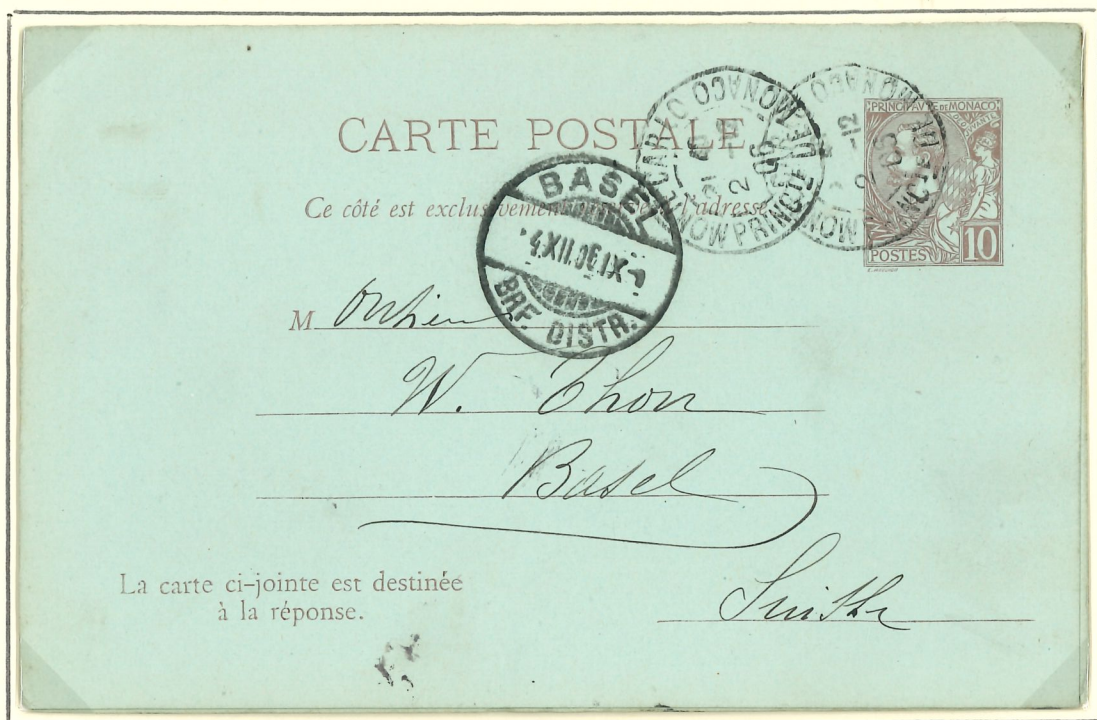 CARTE POSTALE
Ce côté est exclusivement l'adresse
PRINCIPAUTÉ DE MONACO
POSTES 10
MONACO
PRINCTE DE MONACO
BASEL
4.XII.05.IX
BRF. DISTR.
M onsieur
W. Thon
Basel
Suisse
La carte ci-jointe est destinée
à la réponse.